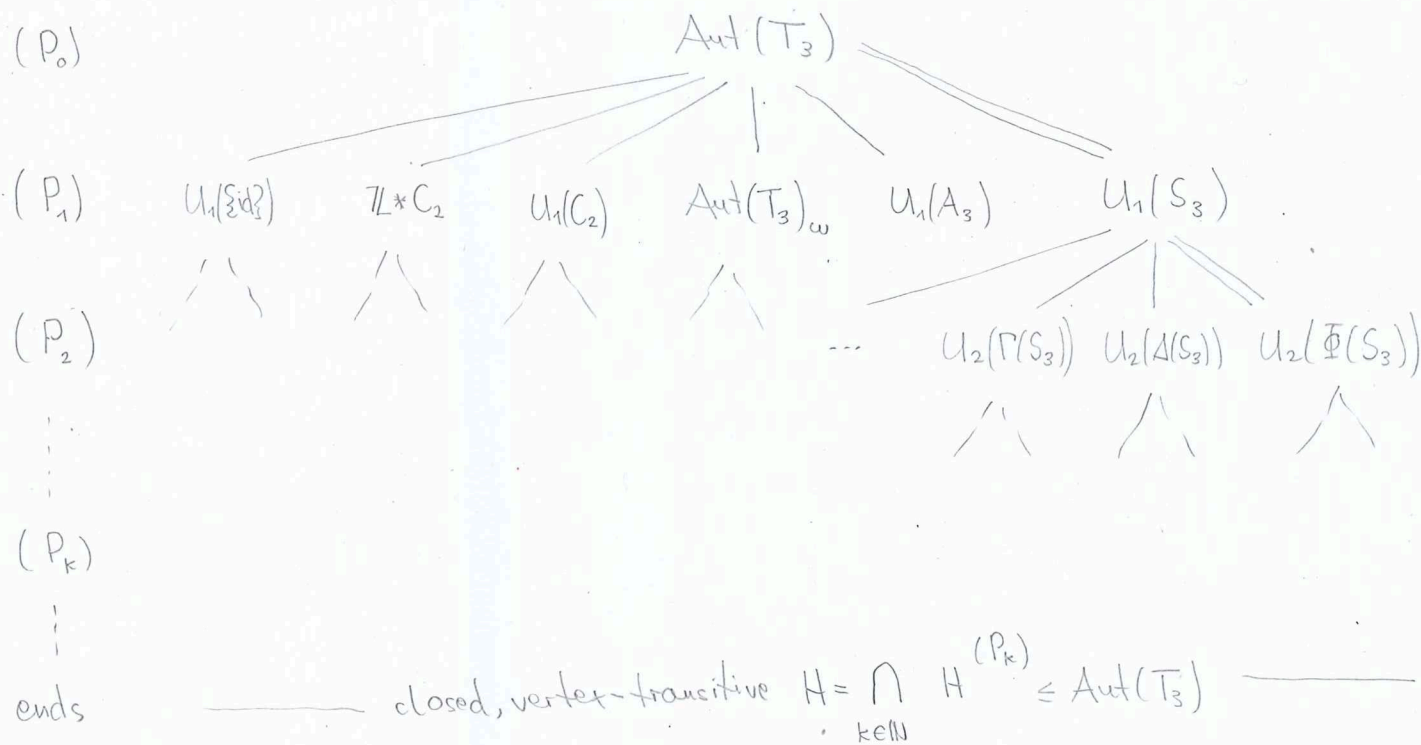 (P₀) Aut(T₃)
(P₁) U₁({id}) ℤ*C₂ U₁(C₂) Aut(T₃)_ω U₁(A₃) U₁(S₃)
(P₂) ... U₂(Γ(S₃)) U₂(Δ(S₃)) U₂(Φ(S₃))
(P_k)
ends closed, vertex-transitive H = ⋂_{k∈ℕ} H^{(P_k)} ≤ Aut(T₃)